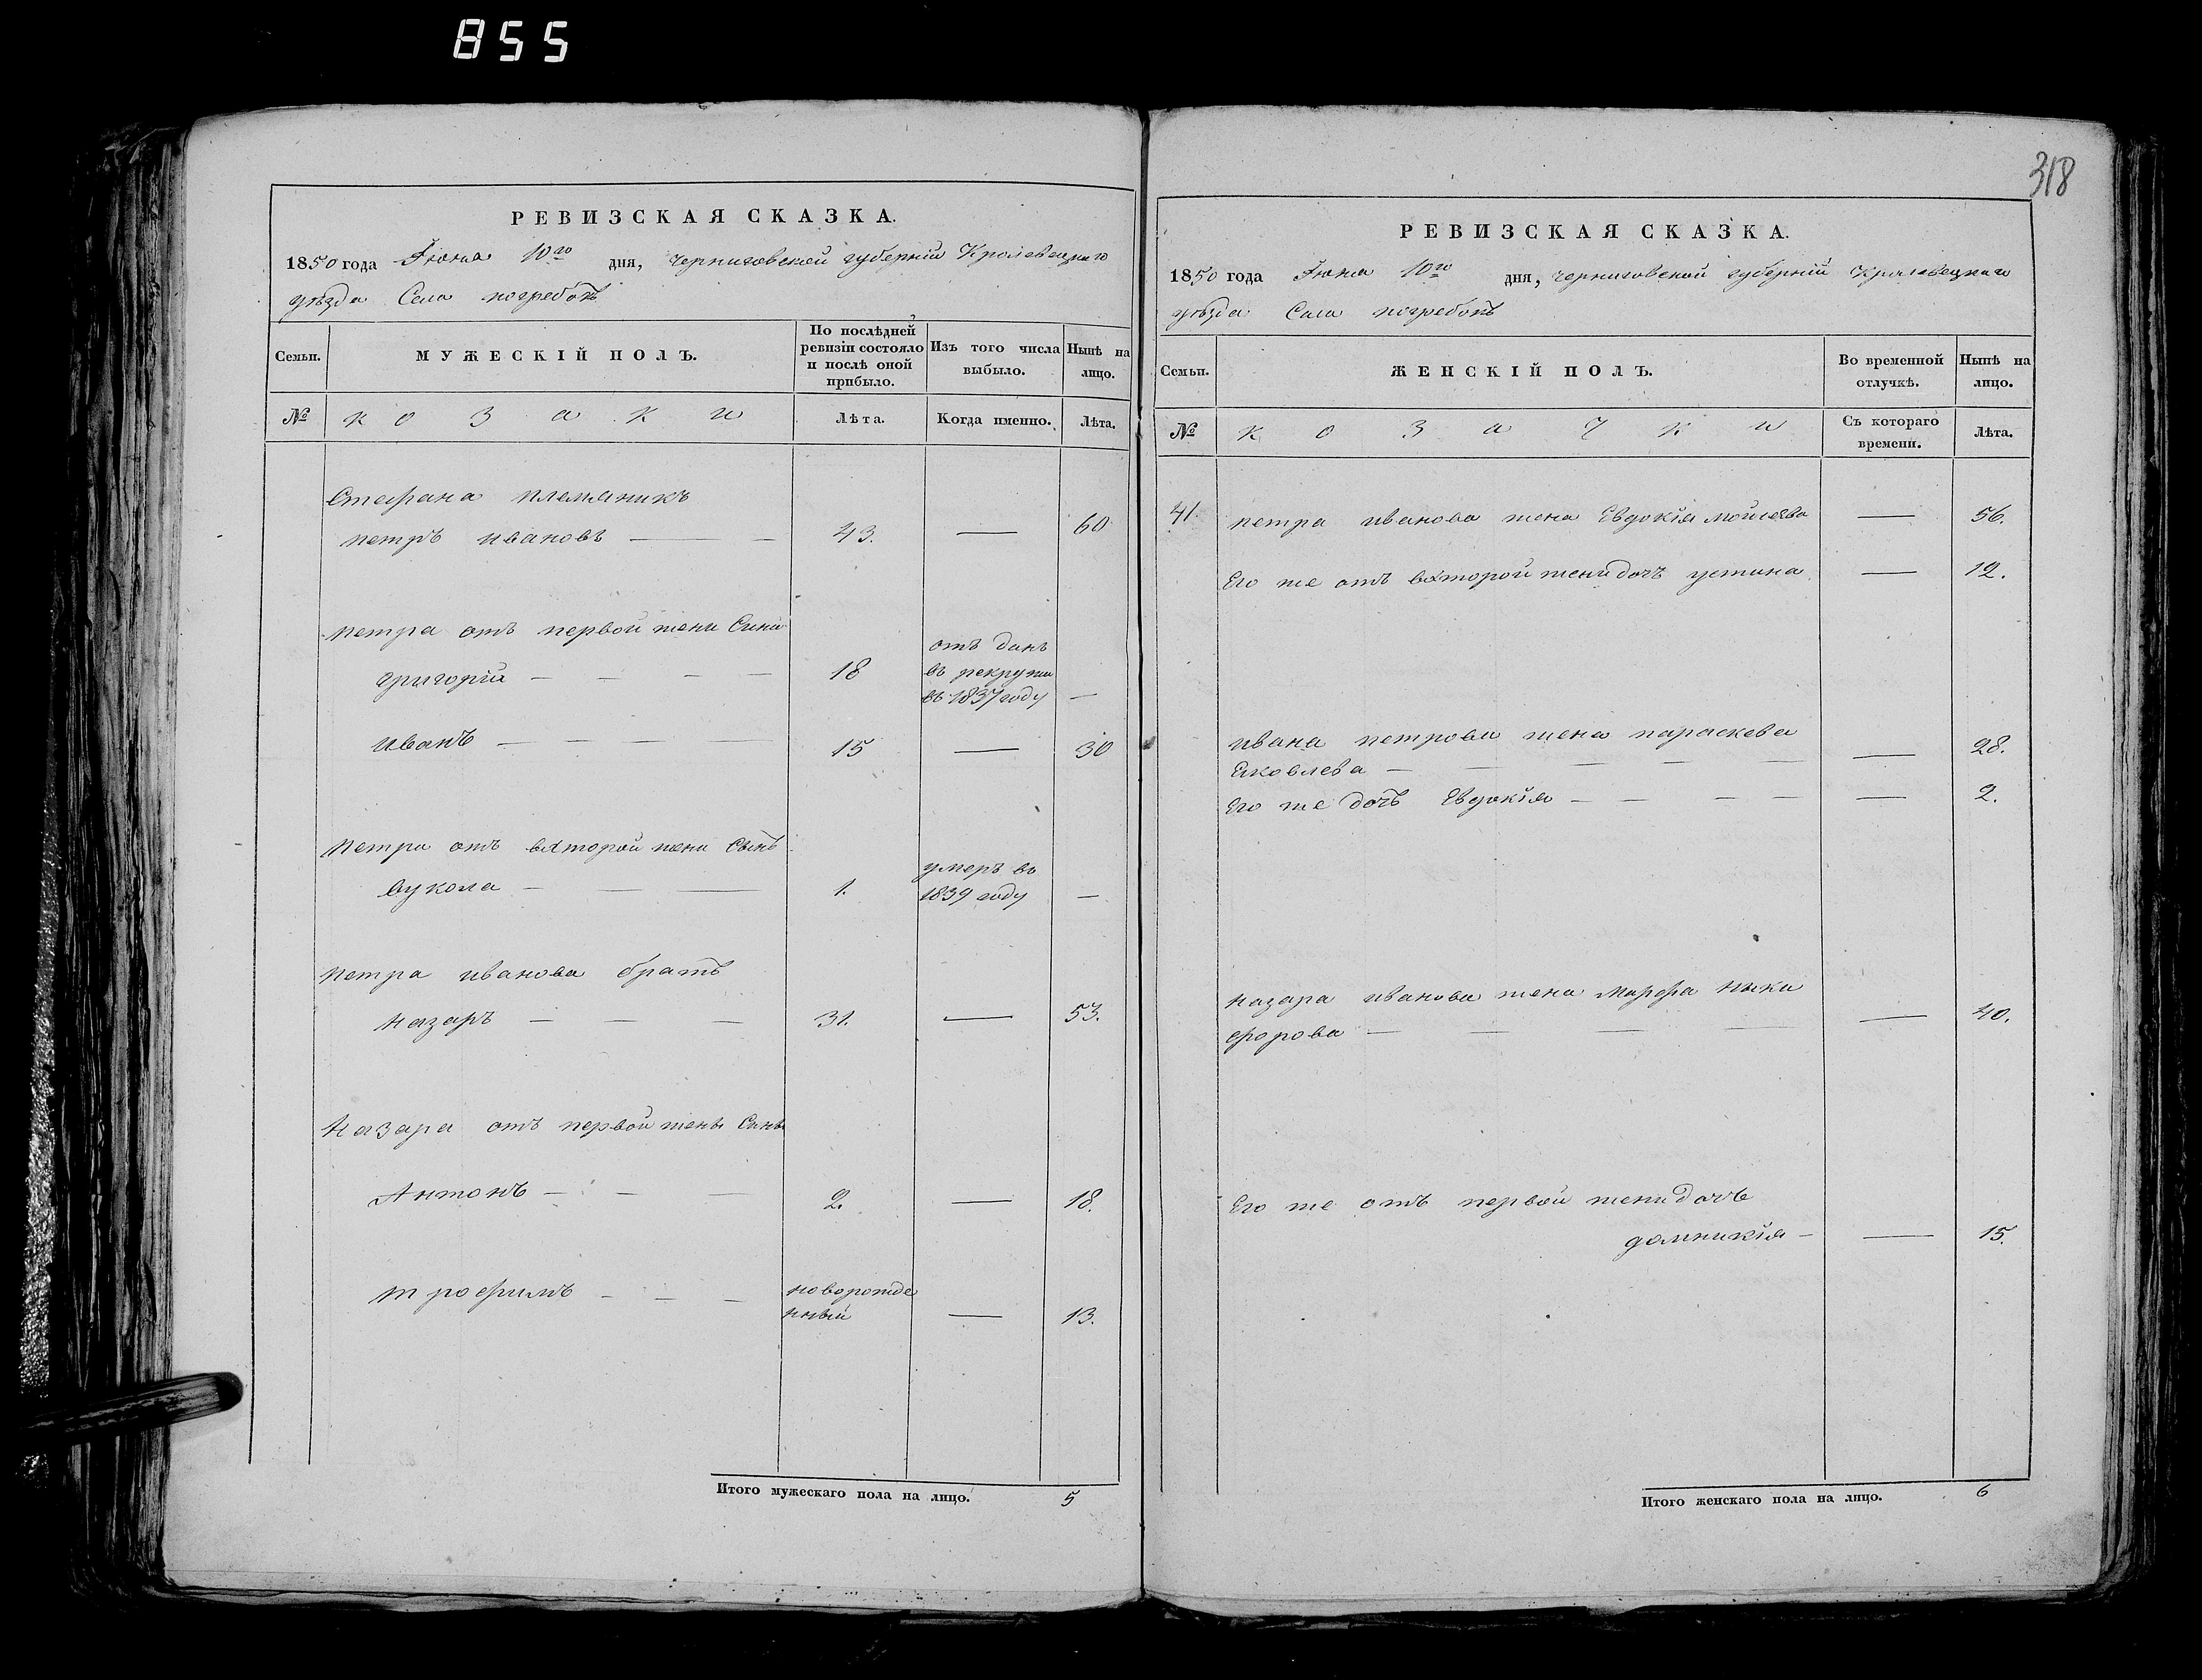 855
318
РЕВИЗСКАЯ СКАЗКА.
1850 года Июня 10го дня, Черниговской губерніи Кролевецкаго
уезда Села погребокъ
Семьи.
МУЖЕСКІЙ ПОЛЪ.
По послѣдней
ревизіи состояло
и послѣ оной
прибыло.
Изъ того числа
выбыло.
Нынѣ на
лицо.
№ козаки Лѣта. Когда именно. Лѣта.
Стефана племяникъ
петръ ивановъ — 43. — 60
петра отъ первой жени Сини
григорій — 18
отъ данъ
въ рекруты
въ 1837 году —
иванъ — 15 — 30
петра отъ вхторой жени Сынъ
вукола — 1.
умеръ въ
1839 году —
петра иванова братъ
назаръ — 31. — 53.
назара отъ первой жены Сины
Антонъ — 2. — 18.
трофимъ — новорожде
нный — 13.
Итого мужескаго пола на лицо. 5
РЕВИЗСКАЯ СКАЗКА.
1850 года Июня 10го дня, Черниговской губерніи Кролевецкаго
уезда Села погребокъ
Семьи.
ЖЕНСКІЙ ПОЛЪ.
Во временной
отлучкѣ.
Нынѣ на
лицо.
№ козачки
Съ котораго
времени.
Лѣта.
41. петра иванова жена Евдокія мойсеева — 56.
Его же отъ вхторой жени дочъ устина — 12.
ивана петрова жена параскева
Ековлева — 28.
Его же дочъ Евдокія — 2.
назара иванова жена Марфа ники
форова — 40.
Его же отъ первой жени дочъ
домникія — 15.
Итого женскаго пола на лицо. 6